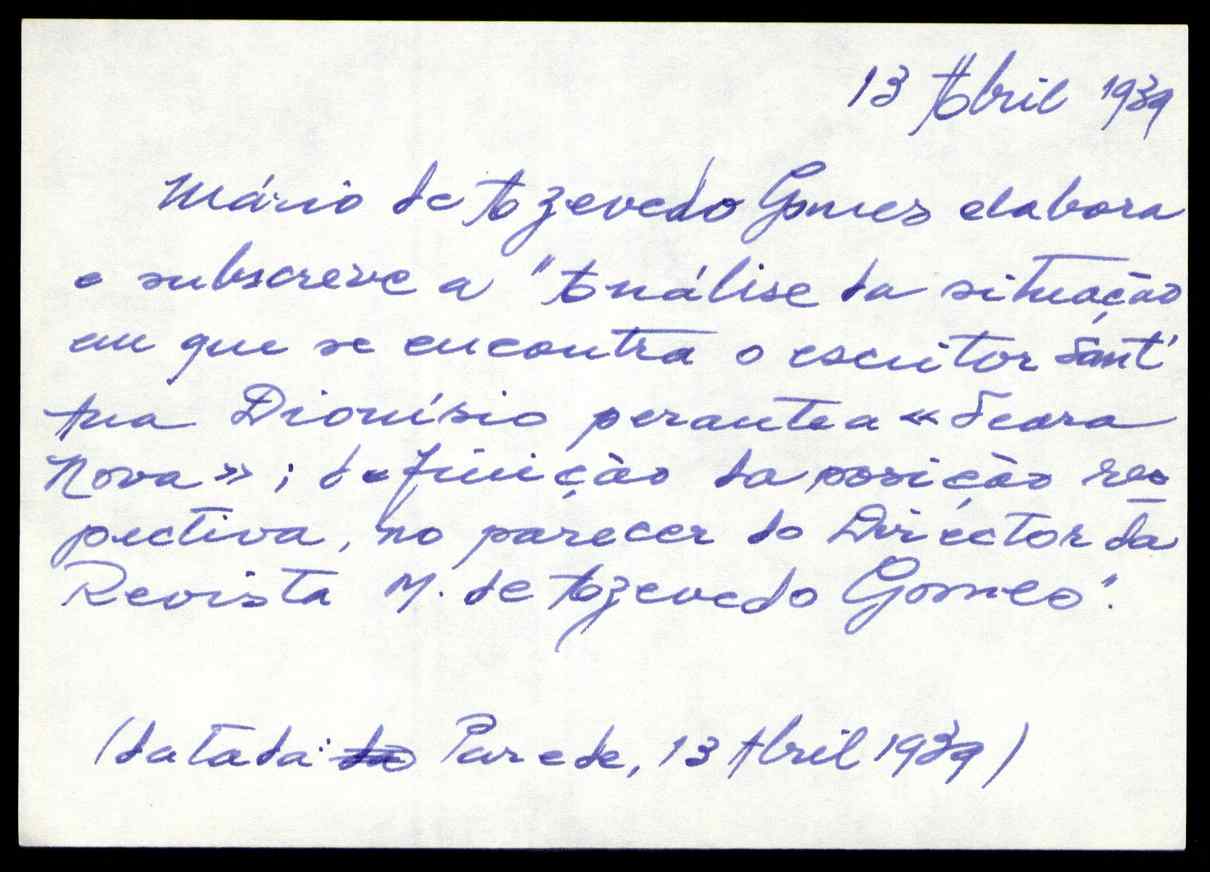 13 Abril 1939
Mário de Azevedo Gomes elabora
e subscreve a "Análise da situação
em que se encontra o escritor Sant'
Ana Dionísio perante a «Seara
Nova»; definição da posição res-
pectiva, no parecer do Diréctor da
Revista M. de Azevedo Gomes".
(datada: da Parede, 13 Abril 1939)